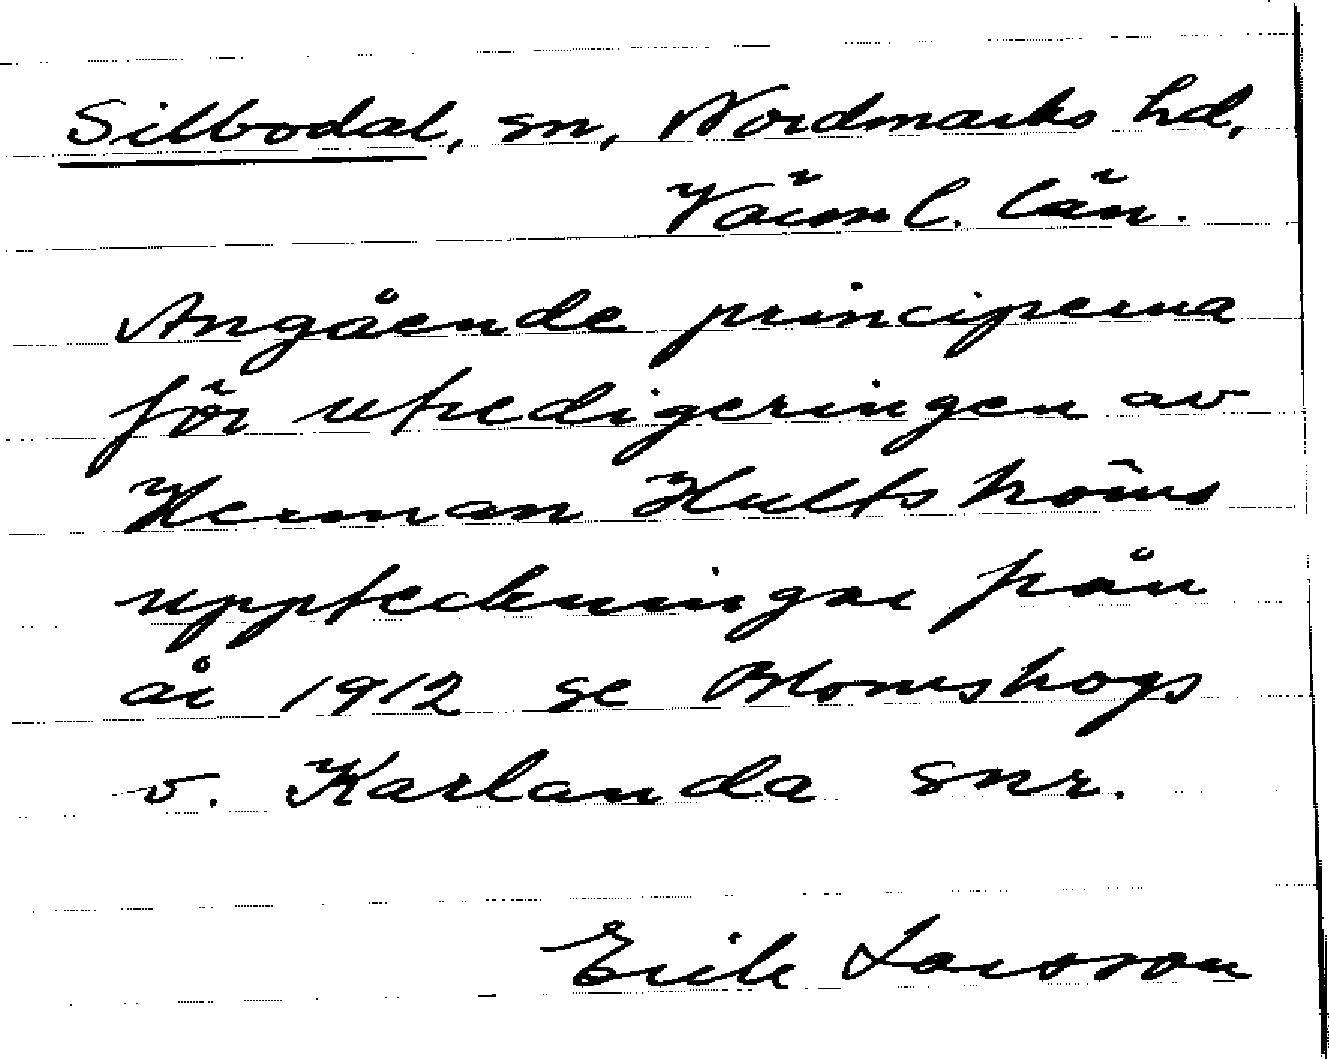 Silbodal, sn, Nordmarks hd,
Värml. län.
Angående principerna
för utredigeringen av
Herman Hultströms
uppteckningar från
år 1912 se Blomskogs
o. Karlanda snr.
Erik Larsson